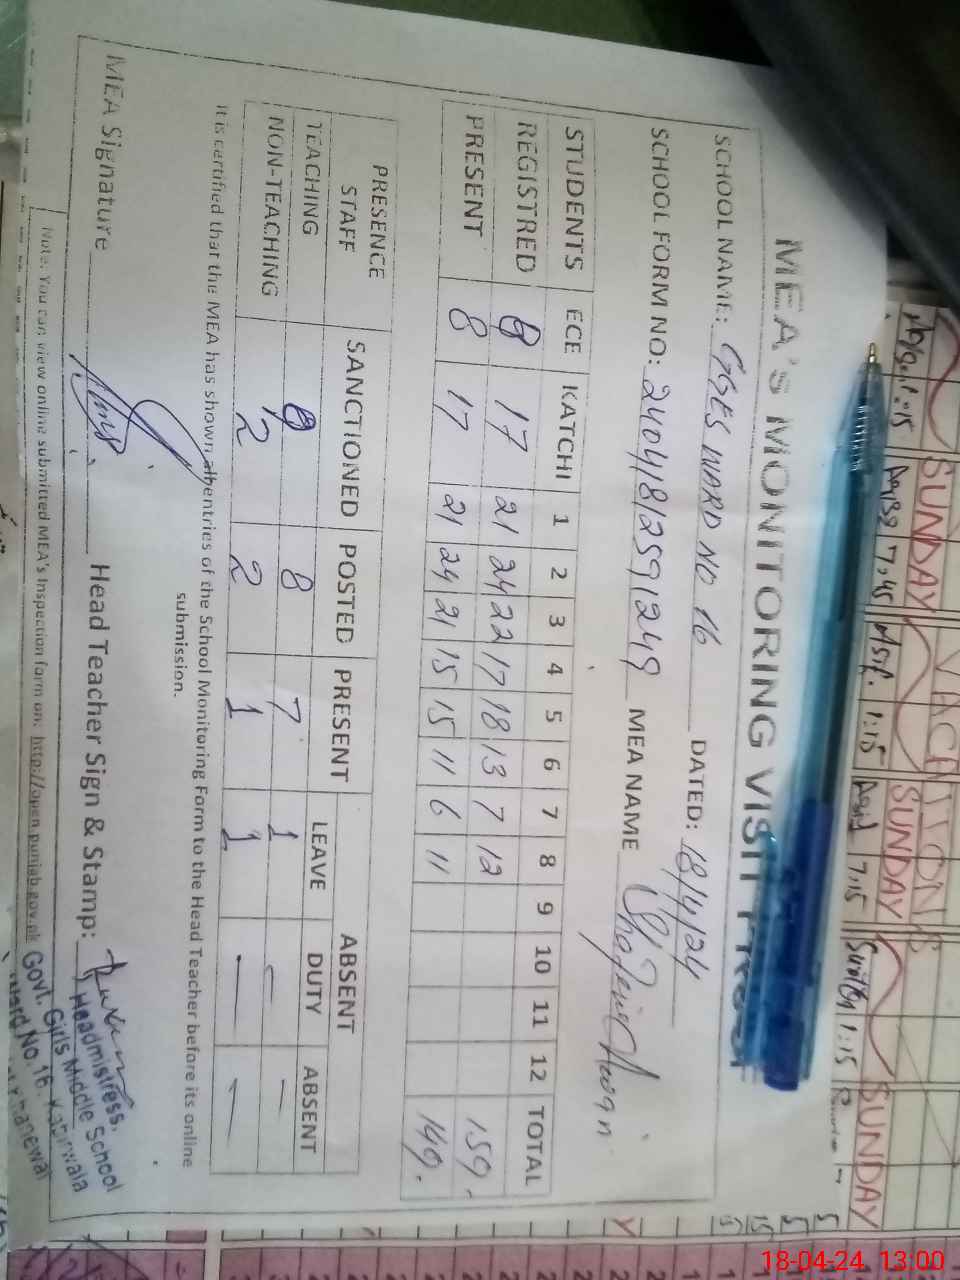 MEA'S MONITORING VISIT
SCHOOL NAME: GGES WARD NO 16 DATED: 18/4/24
SCHOOL FORM NO: 24048/259/249 MEA NAME
STUDENTS ECE KATCHI 1 2 3 4 5 6 7 8 9 10 11 12 TOTAL
REGISTRED 8 17 21 24 22 17 18 13 7 12 159.
PRESENT 8 17 21 24 21 15 15 11 6 11 149.
PRESENCE STAFF SANCTIONED POSTED PRESENT ABSENT
LEAVE DUTY ABSENT
TEACHING 8 7 1 — —
NON-TEACHING 2 2 1 1 — —
It is certified that the MEA has shown all entries of the School Monitoring Form to the Head Teacher before its online
submission.
MEA Signature Head Teacher Sign & Stamp:
Headmistress,
Govt. Girls Middle School
Ward No. 16. Kabirwala
Khanewal
Note: You can view online submitted MEA's Inspection form on: http://open.punjab.gov.pk
SUNDAY
VACATION
SUNDAY
SUNDAY
1:15
7:45
1:15
7:15
1:15
18-04-24 13:00